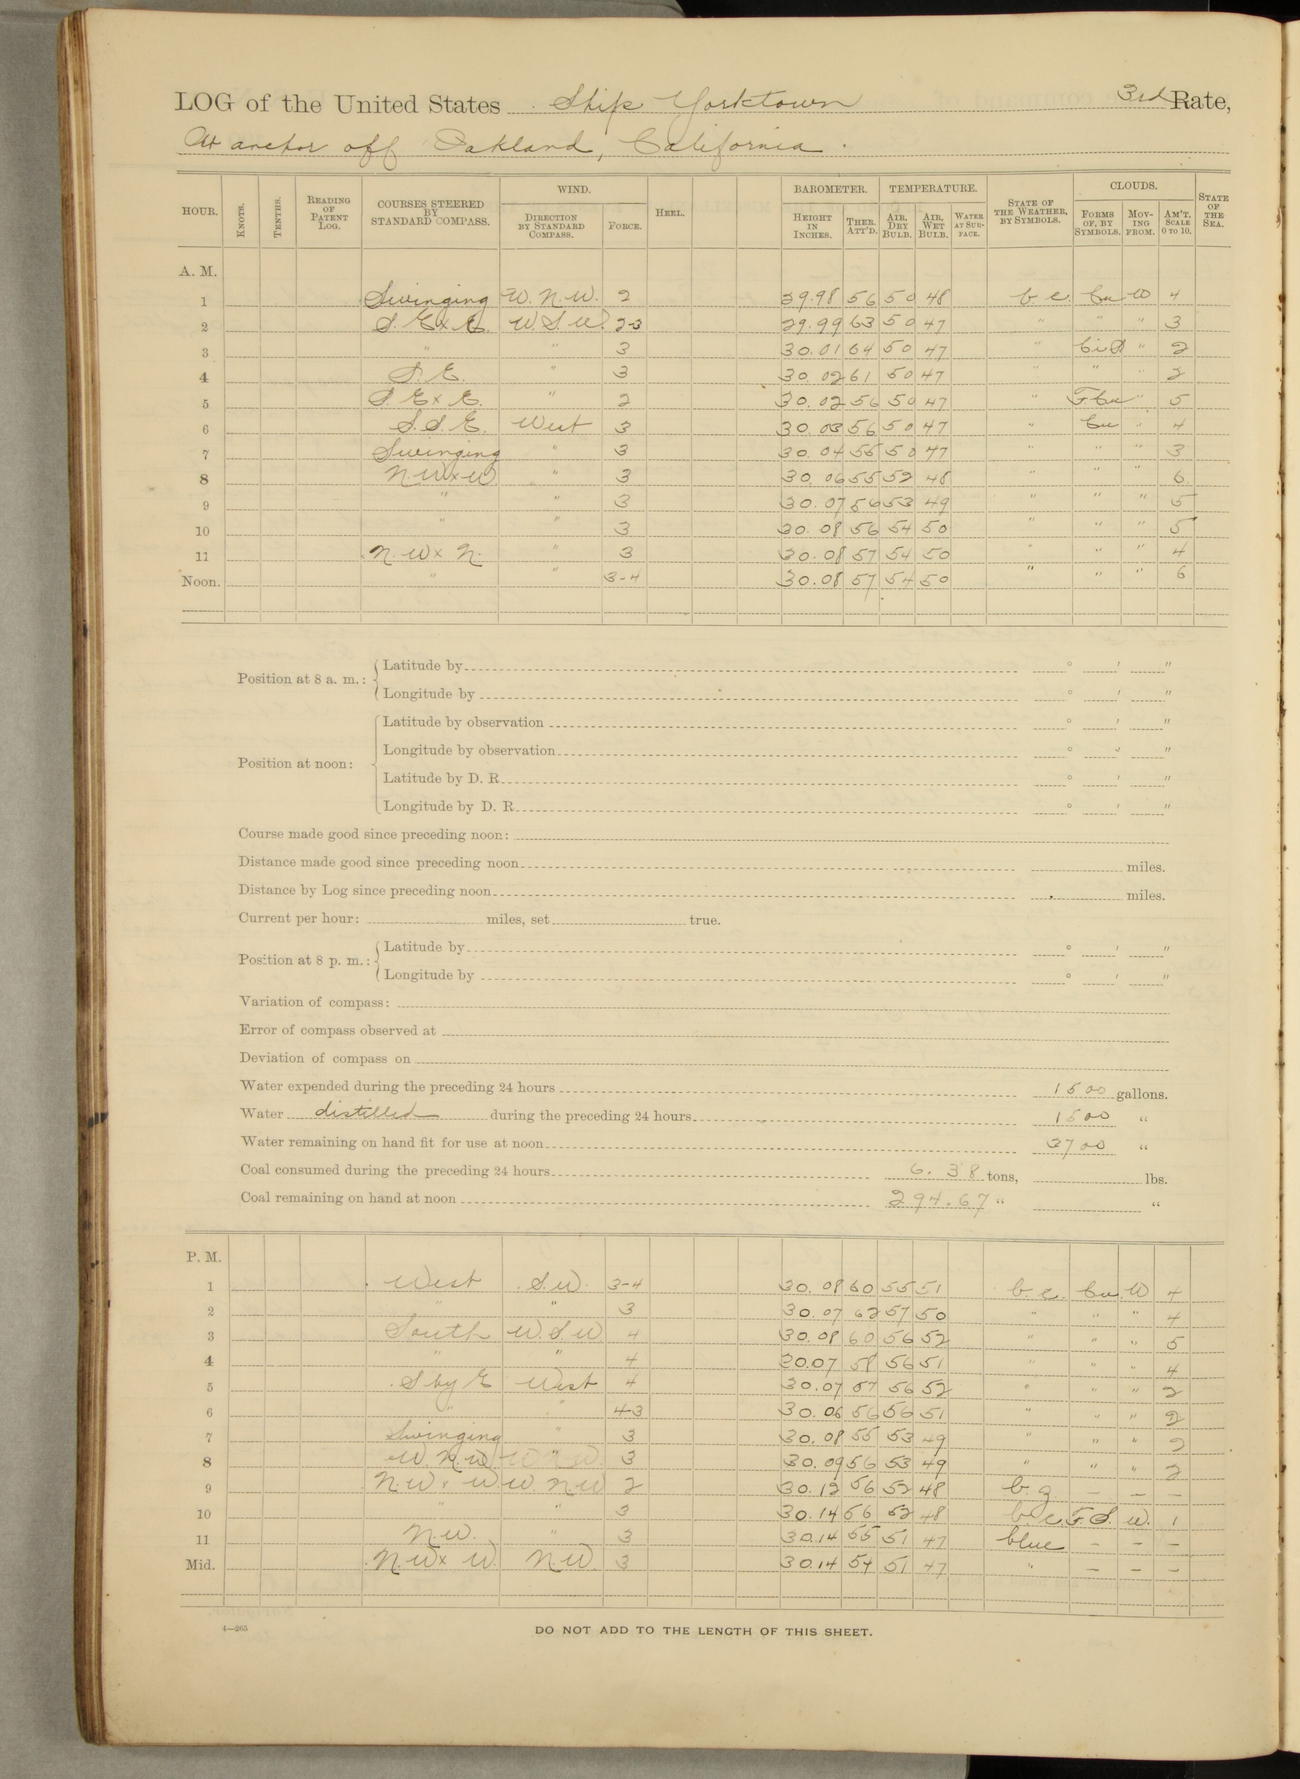 LOG of the United States Ship Yorktown 3rd Rate,
At anchor off Oakland, California.
HOUR. KNOTS. TENTHS. READING OF PATENT LOG. COURSES STEERED BY STANDARD COMPASS. WIND. DIRECTION BY STANDARD COMPASS. FORCE. HEEL. BAROMETER. HEIGHT IN INCHES. THER. ATT'D. TEMPERATURE. AIR, DRY BULB. AIR, WET BULB. WATER AT SURFACE. STATE OF THE WEATHER, BY SYMBOLS. CLOUDS. FORMS OF, BY SYMBOLS. MOVING FROM. AM'T. SCALE 0 TO 10. STATE OF THE SEA.
A. M.
1 Swinging W. N. W. 2 29.98 56 50 48 b c. Cu W 4
2 S. E x E. W. S. W. 2-3 29.99 63 50 47 " " " 3
3 " " 3 30.01 64 50 47 " Ci S " 2
4 S. E. " 3 30.02 61 50 47 " " " 2
5 S. E x E. " 2 30.02 56 50 47 " F Cu " 5
6 S. S. E. West 3 30.03 56 50 47 " Cu " 4
7 Swinging " 3 30.04 55 50 47 " " " 3
8 N W x W " 3 30.06 55 52 48 " " " 6
9 " " 3 30.07 56 53 49 " " " 5
10 " " 3 30.08 56 54 50 " " " 5
11 N. W x N. " 3 30.08 57 54 50 " " " 4
Noon. " " 3-4 30.08 57 54 50 " " " 6
Position at 8 a. m.: Latitude by ° ' "
Longitude by ° ' "
Position at noon: Latitude by observation ° ' "
Longitude by observation ° ' "
Latitude by D. R. ° ' "
Longitude by D. R. ° ' "
Course made good since preceding noon:
Distance made good since preceding noon miles.
Distance by Log since preceding noon miles.
Current per hour: miles, set true.
Position at 8 p. m.: Latitude by ° ' "
Longitude by ° ' "
Variation of compass:
Error of compass observed at
Deviation of compass on
Water expended during the preceding 24 hours 1500 gallons.
Water distilled during the preceding 24 hours 1500 "
Water remaining on hand fit for use at noon 3700 "
Coal consumed during the preceding 24 hours 6.38 tons, lbs.
Coal remaining on hand at noon 294.67 " "
P. M.
1 West S. W. 3-4 30.08 60 55 51 b. c. Cu W 4
2 " " 3 30.07 62 57 50 " " " 4
3 South W. S. W 4 30.08 60 56 52 " " " 5
4 " " 4 30.07 58 56 51 " " " 4
5 S by E West 4 30.07 57 56 52 " " " 2
6 " " 4-3 30.06 56 56 51 " " " 2
7 Swinging " 3 30.08 55 53 49 " " " 2
8 W. N. W " 3 30.09 56 53 49 " " " 2
9 N. W x W W. N. W 2 30.12 56 52 48 b. – – –
10 " " 3 30.14 56 52 48 b. c. F. S. W. 1
11 N. W. " 3 30.14 55 51 47 blue – – –
Mid. N. W x W. N. W. 3 30.14 54 51 47 " – – –
4—265
DO NOT ADD TO THE LENGTH OF THIS SHEET.